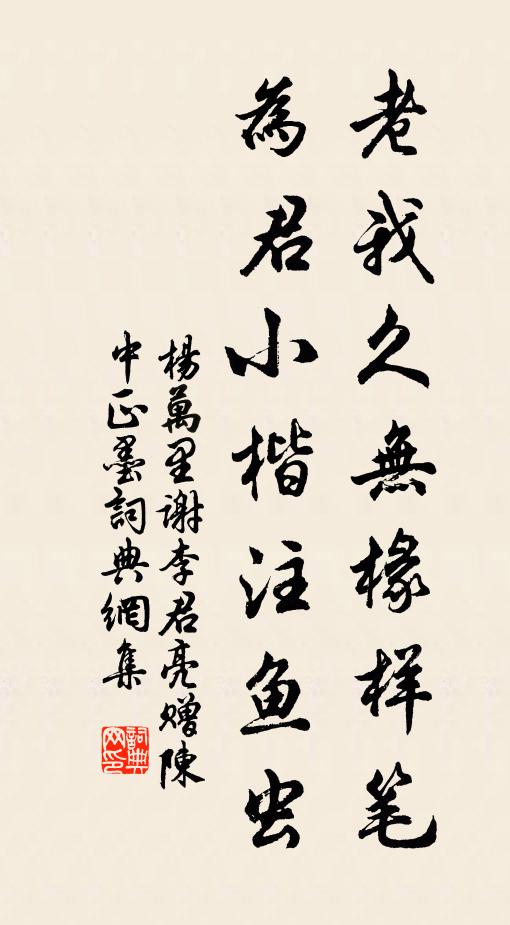 老我久無椽样笔
為君小楷注鱼虫
楊萬里謝李君亮赠陳
中正墨詞典網集
詞典网印